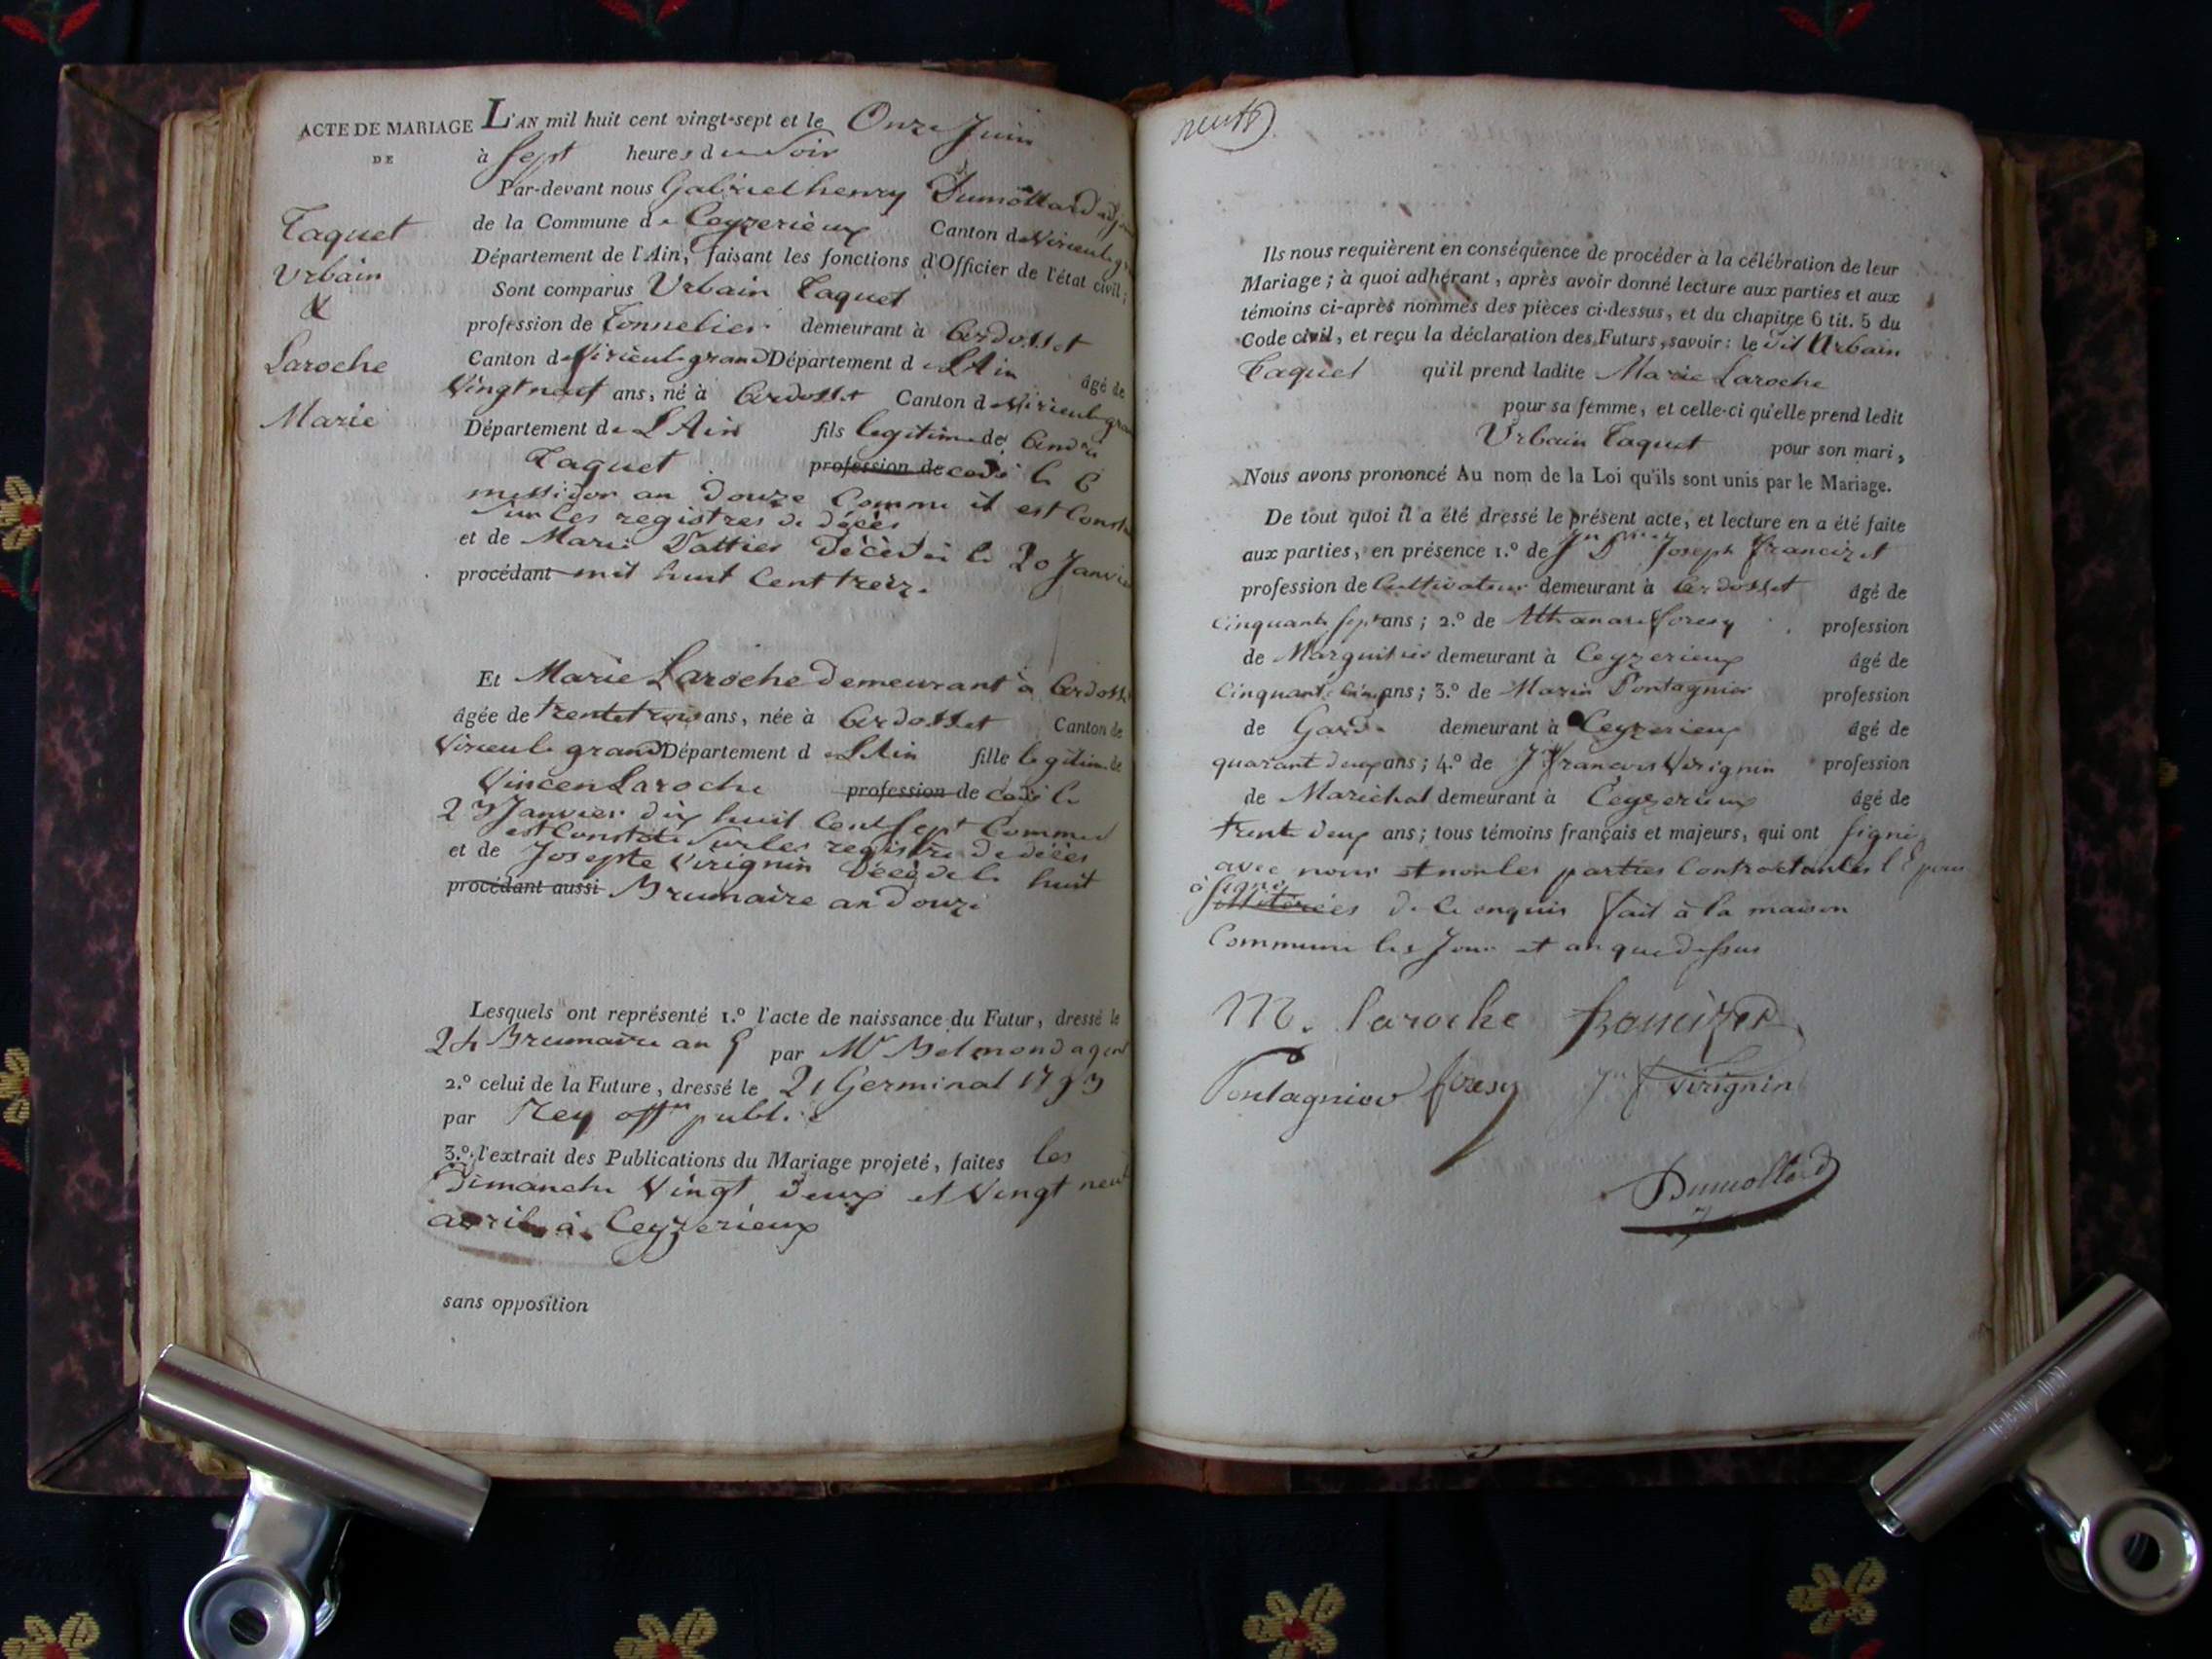 ACTE DE MARIAGE
DE
Taquet
Urbain
&
Laroche
Marie
L'AN mil huit cent vingt-sept et le Onze Juin
à sept heures du Soir
Par-devant nous Gabriel henry Dumollard adj
de la Commune de Ceyzerieux Canton de Virieu le gr
Département de l'Ain, faisant les fonctions d'Officier de l'état civil;
Sont comparus Urbain Taquet
profession de Tonnelier demeurant à Ardosset
Canton de Virieu le grand Département de L'Ain âgé de
Vingt neuf ans, né à Ardosset Canton de Virieu le gran
Département de L'Ain fils legitime de André
Taquet profession de cedé le 6
messidor an douze Comme il est Const
sur les registres de décès
et de Marie Vattier décèdée le 20 Janvie
procédant mil huit Cent treize
Et Marie Laroche demeurant à Ardoss
âgée de trente trois ans, née à Ardosset Canton de
Virieu le grand Département de L'Ain fille legitime de
Vincen Laroche profession de cedé le
23 Janvier dix huit Cent sept Comme il
est Constaté sur les registre de décès
et de Josepte Virignin décèdé le huit
procédant aussi Brumaire an douze
Lesquels ont représenté 1.º l'acte de naissance du Futur, dressé le
24 Brumaire an 6 par Mr Belmond agent
2.º celui de la Future, dressé le 21 Germinal 1793
par Rey offr public
3.º l'extrait des Publications du Mariage projeté, faites les
Dimanche Vingt deux et Vingt neuf
avril à Ceyzerieux
sans opposition
neuf
Ils nous requièrent en conséquence de procéder à la célébration de leur
Mariage; à quoi adhérant, après avoir donné lecture aux parties et aux
témoins ci-après nommés des pièces ci-dessus, et du chapitre 6 tit. 5 du
Code civil, et reçu la déclaration des Futurs, savoir: le dit Urbain
Taquet qu'il prend ladite Marie Laroche
pour sa femme, et celle-ci qu'elle prend ledit
Urbain Taquet pour son mari,
Nous avons prononcé Au nom de la Loi qu'ils sont unis par le Mariage.
De tout quoi il a été dressé le présent acte, et lecture en a été faite
aux parties, en présence 1.º de Joseph Francizet
profession de Cultivateur demeurant à Ardosset âgé de
cinquante sept ans; 2.º de Athanase foresy profession
de Marguillier demeurant à Ceyzerieux âgé de
Cinquante cinq ans; 3.º de Marin Pontagnier profession
de Garde demeurant à Ceyzerieux âgé de
quarant deux ans; 4.º de J francois Virignin profession
de Maréchal demeurant à Ceyzerieux âgé de
trente deux ans; tous témoins français et majeurs, qui ont signé
avec nous et non les parties Contractantes l'Epouse
à signé
illitérées de ce enquis fait à la maison
Commune les Jour et an que dessus
M. laroche francizet
Pontagnier foresy Jn f virignin
Dumollard